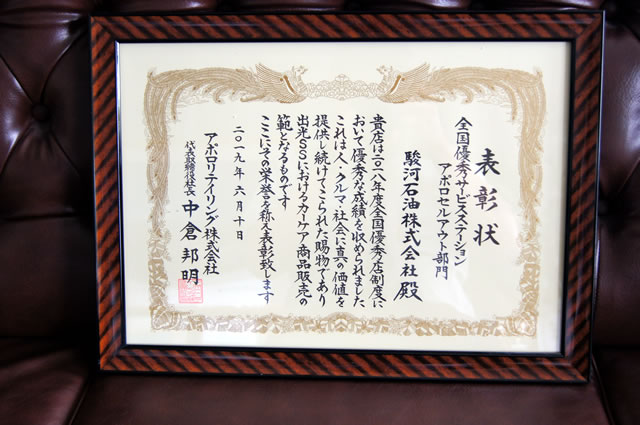 表彰状
全国優秀サービスステーション
アポロセルアウト部門
駿河石油株式会社殿
貴店は二〇一八年度全国優秀店制度に
おいて優秀な成績を収められました
これは人・クルマ・社会に真の価値を
提供し続けてこられた賜物であり
出光SSにおけるカーケア商品販売の
範となるものです
ここにその栄誉を称え表彰致します
二〇一九年六月十日
アポロリテイリング株式会社
代表取締役社長 中倉邦明